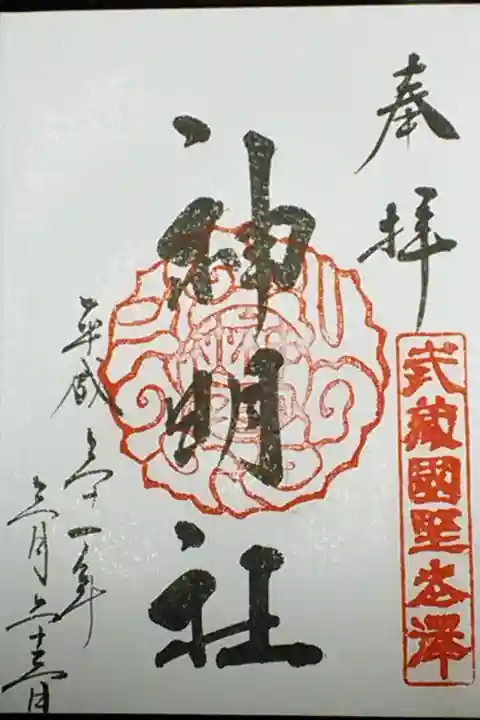 奉拝
武藏國野老澤
神明社
平成三十一年
三月二十三日